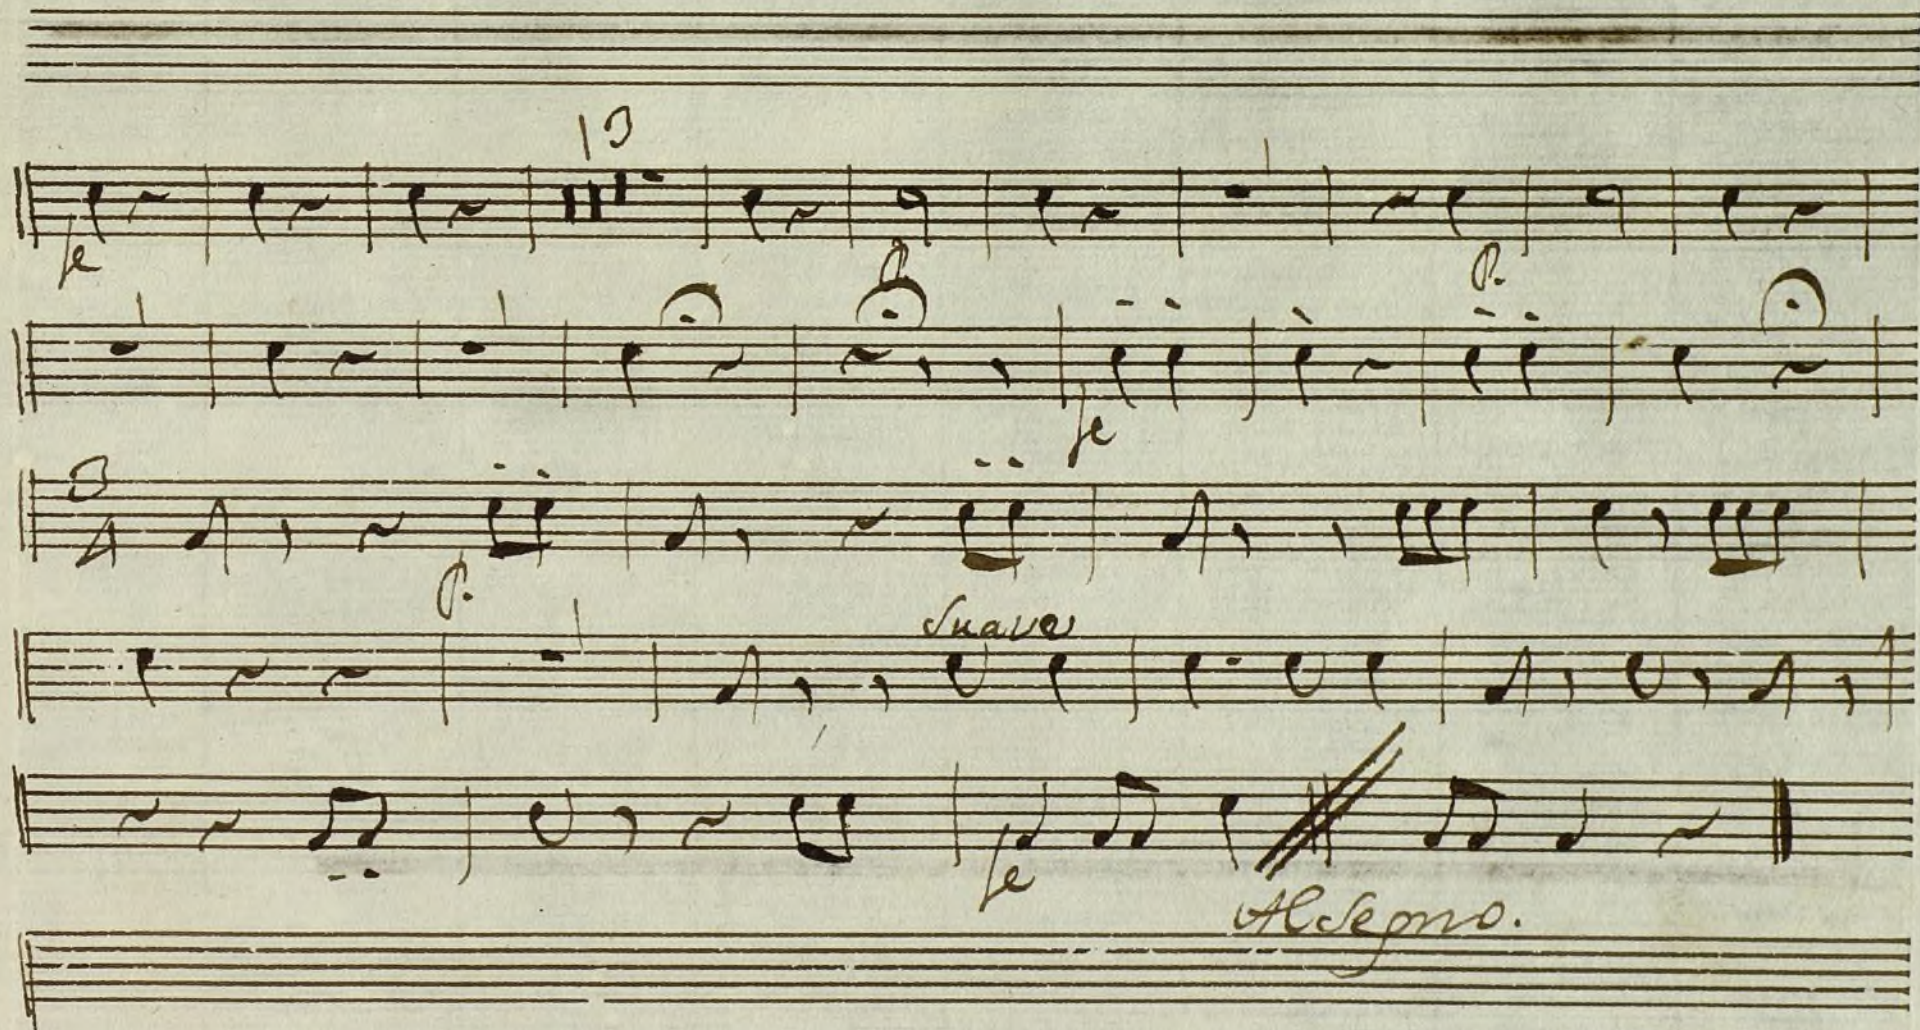 13
fe
P.
P.
fe
3
4
P.
Suave
fe
Al Segno.